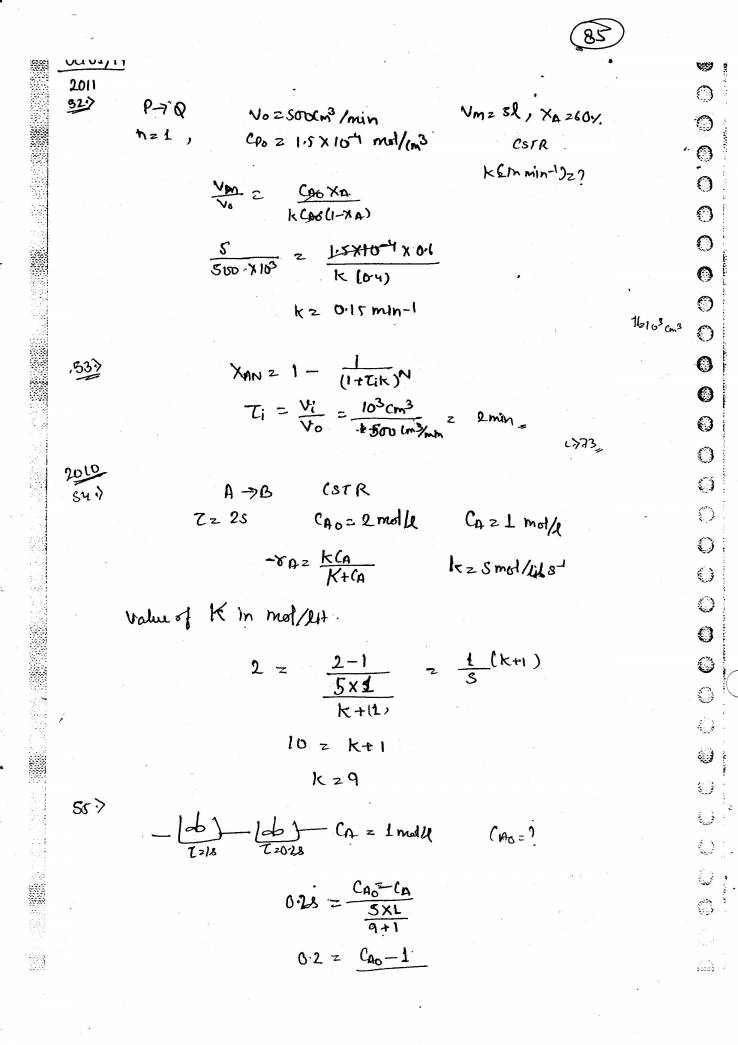 85
2011
52.> P→Q V₀ = 500cm³/min Vm = 5l, XA = 60%.
n=1, CP₀ = 1.5×10⁻⁴ mol/cm³ CSTR
k (in min⁻¹) = ?
Vm/V₀ = CA₀ XA / kCA₀(1-XA)
5 / 500 × 10³ = 1.5×10⁻⁴ × 0.6 / k (0.4)
k = 0.15 min-1
10³ cm³
53.> XAN = 1 - 1/(1+τik)^N
τi = Vi/V₀ = 10³cm³ / 500 cm³/min = 2min
2010
54.> A→B CSTR
τ = 2s CA₀ = 2 mol/l CA = 1 mol/l
-rA = kCA / K+CA k = 5 mol/lit s⁻¹
Value of K in mol/lit.
2 = 2-1 / (5×1 / k+(1)) = 1/5 (k+1)
10 = k+1
k = 9
55> CA = 1 mol/l CA₀ = ?
τ=1s τ=0.2s
0.2s = CA₀-CA / (5×1 / 9+1)
0.2 = CA₀-1